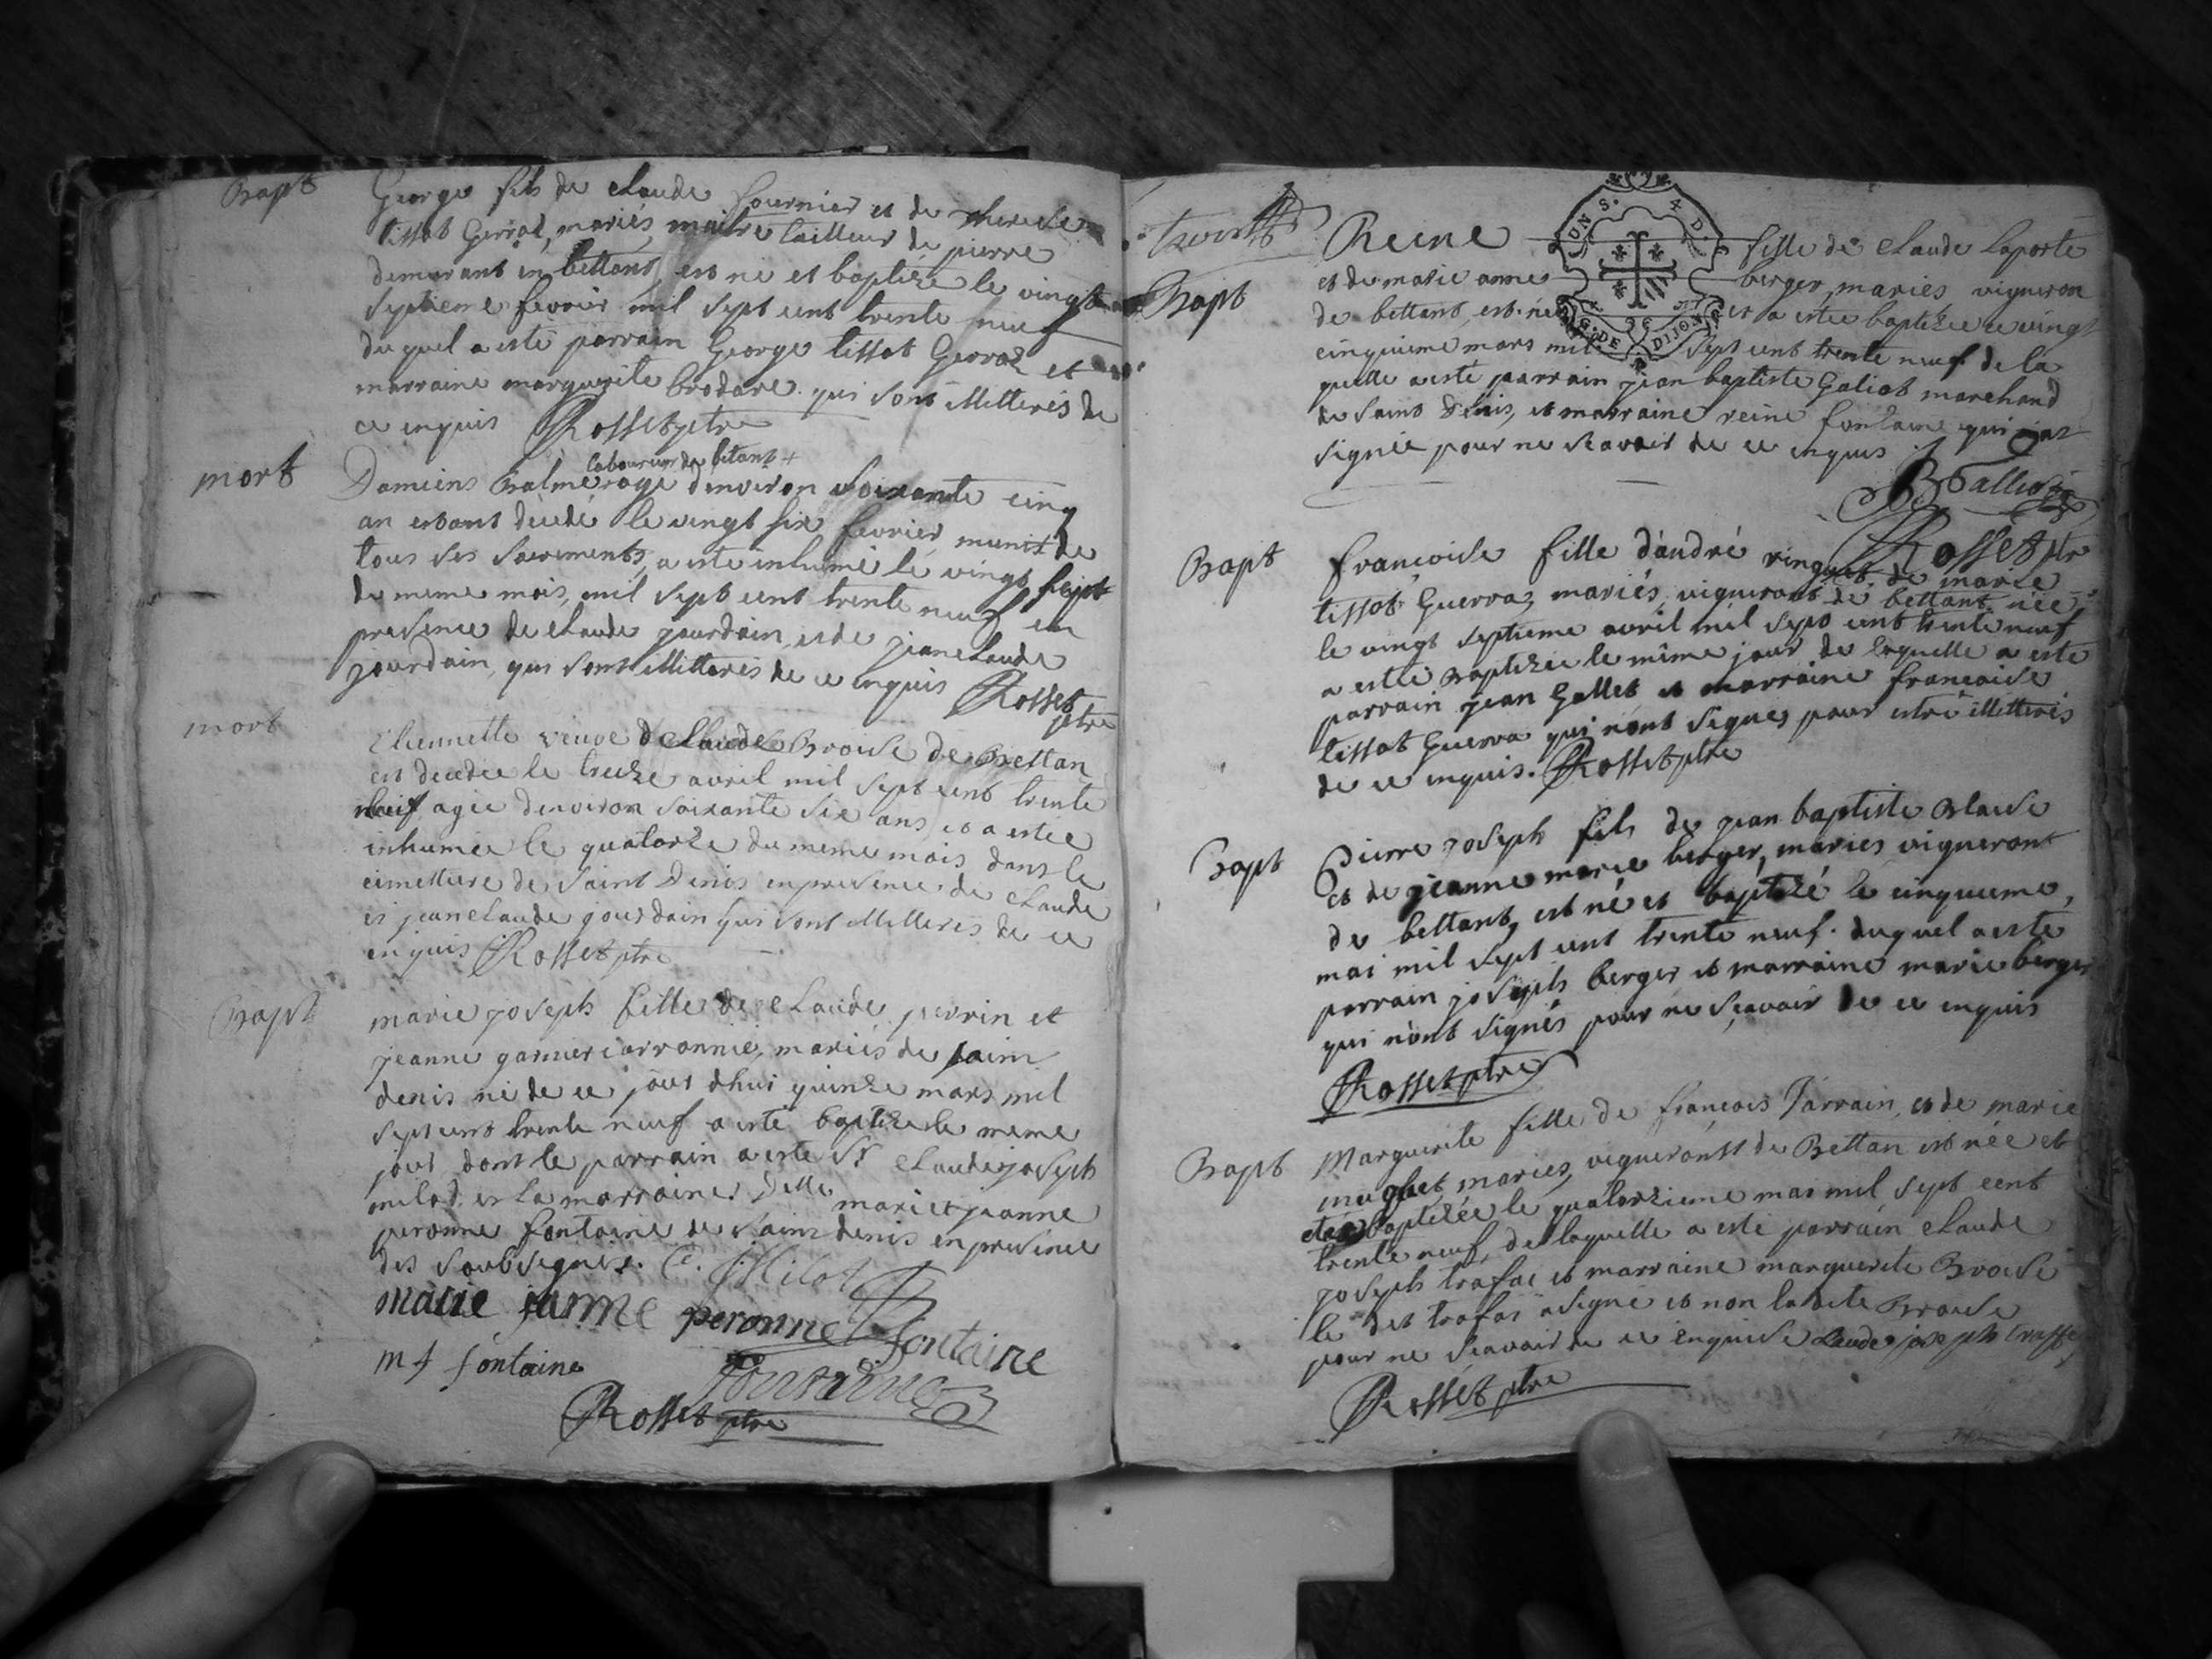 Bapt
George fils de claude fournier et de therese
tissot Gerraz, mariés, maitre tailleur de pierre
demeurant in bettant, est né et baptize le vingt
septieme fevrier mil sept cent trente neuf
duquel a esté parrain George tissot Gerraz et
marraine marguerite brodare qui sont illitterés de
ce enquis Rosset ptre
mort
laboureur de betant +
Damiens Balme age denviron soixante cinq
an estant décédé le vingt six fevrier munit de
tous ses sacrements, a este inhumé le vingt sept
du meme mois, mil sept cent trente neuf en
presence de claude jourdain et de jean claude
jourdain, qui sont illitterés de ce enquis Rosset
ptre
mort
Etiennette veuve de claude Broise de Bettan
est decedee le treize avril mil sept cent trente
neuf agée denviron soixante six ans, et a estée
inhumée le quatorze du meme mois dans le
cimettiere de saint Denis en presence de claude
et jean claude jourdain qui sont illitteres de ce
enquis Rosset ptre
Bapt
marie joseph fille de claude perrin et
jeanne garnier mariés de saint
denis né de ce jour dhui quinze mars mil
sept cent trente neuf a esté baptize le meme
jour dont le parrain a este Sr claude joseph
milot et la marraine Delle marie jeanne
peronne fontaine de saint denis en presence
des soubsignes. C. J. Milot
marie janne peronne fontaine
m f fontaine
fontaine
Rosset ptre
Bapt
Reine fille de claude laporte
et de marie anne berger, mariés vigneron
de bettant, est née et a estée baptizée ce vingt
cinquieme mars mil sept cent trente neuf de la
quelle a esté parrain jean baptiste Galiot marchand
de saint Denis, et marraine reine fontaine qui
signée pour ne scavoir de ce enquis
Rosset ptre
UN S. 4 D.
G. DE DIJON
Bapt
francoise fille d'andré vinguet de marie
tissot Guerraz mariés vignerons de bettant née
le vingt septieme avril mil sept cent trente neuf
a estée Baptizée le même jour de laquelle a este
parrain jean Gallet et marraine francoise
tissot Guerra qui n'ont signes pour estre illitterés
de ce enquis. Rosset ptre
Bapt
Pierre joseph fils de jean baptiste Blaise
et de jeanne marie berger, maries vigneront
de bettant, est né et baptizé le cinquieme
mai mil sept cent trente neuf. duquel a este
parrain joseph berger et marraine marie berger
qui n'ont signés pour ne sçavoir de ce enquis
Rosset ptre
Bapt
Marguerite fille de francois Parrain, et de marie
mariés, vignerons de Bettan est née et
etée baptizée le quatorzieme mai mil sept cent
trente neuf, de laquelle a esté parrain claude
joseph trafai et marraine marguerite Broise
le dit trafai a signé et non la dite Broise
pour ne scavoir de ce enquise claude joseph traffe
Rosset ptre